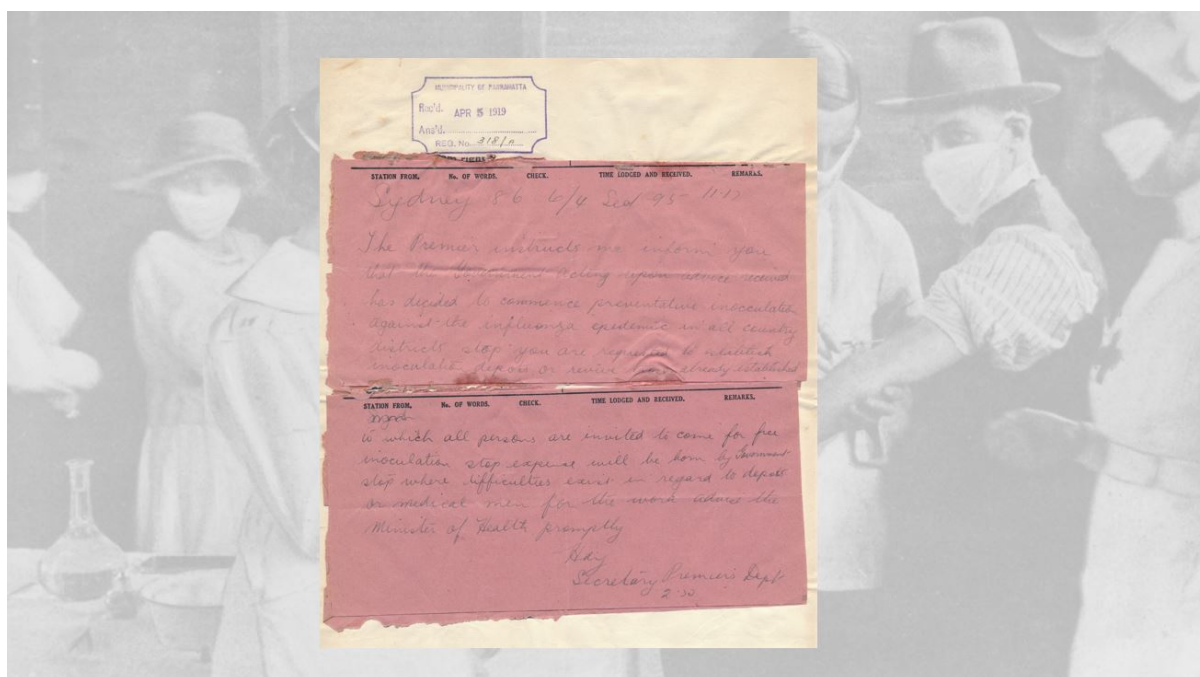 MUNICIPALITY OF PARRAMATTA
Rec'd. APR 5 1919
Ans'd.
REG. No. 318/A
STATION FROM, No. OF WORDS. CHECK. TIME LODGED AND RECEIVED. REMARKS.
Sydney 86 6/4 95 11.17
The Premier instructs me inform you
that the Government acting upon advice received
has decided to commence preventative inocculation
against the influenza epidemic in all country
districts stop you are requested to establish
inoculation depots or revive those already established
STATION FROM, No. OF WORDS. CHECK. TIME LODGED AND RECEIVED. REMARKS.
to which all persons are invited to come for free
inoculation stop expense will be born by Government
stop where difficulties exist in regard to depots
or medical men for the work advise the
Minister of Health promptly
Hay
Secretary Premier's Dept
2.30